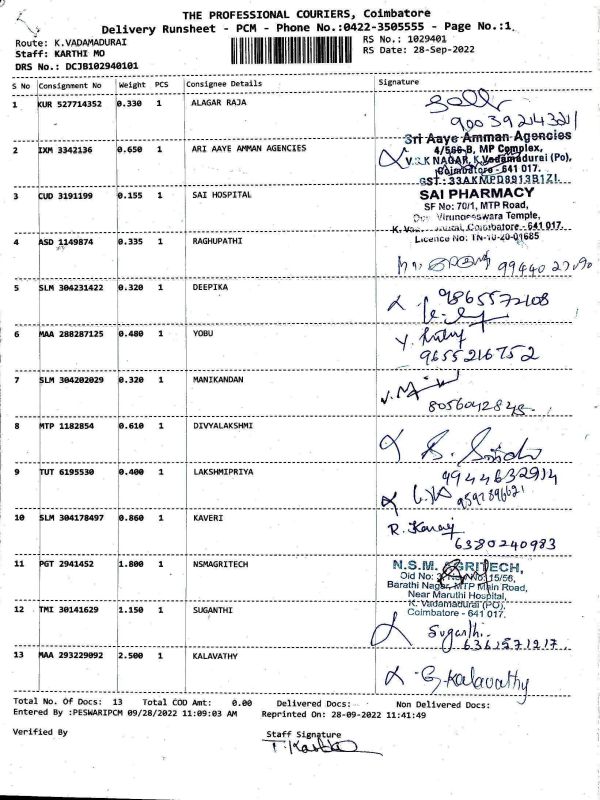 THE PROFESSIONAL COURIERS, Coimbatore
Delivery Runsheet - PCM - Phone No.:0422-3505555 - Page No.:1
Route: K.VADAMADURAI RS No.: 1029401
Staff: KARTHI MO RS Date: 28-Sep-2022
DRS No.: DCJB102940101
S No Consignment No Weight PCS Consignee Details Signature
1 KUR 527714352 0.330 1 ALAGAR RAJA
9003921432
2 IXM 3342136 0.650 1 ARI AAYE AMMAN AGENCIES
Sri Aaye Amman Agencies
4/566-B, MP Complex,
V.S.K NAGAR, K.Vadamadurai (Po),
Coimbatore - 641 017.
GST : 33AKMPD8913B1ZI.
3 CUD 3191199 0.155 1 SAI HOSPITAL
SAI PHARMACY
SF No: 70/1, MTP Road,
Temple,
Coimbatore - 641 017.
Licence No: TN-10-20-01685
4 ASD 1149874 0.335 1 RAGHUPATHI
99440
5 SLM 304231422 0.320 1 DEEPIKA
9865572108
6 MAA 288287125 0.480 1 YOBU
Y.
9655216752
7 SLM 304202029 0.320 1 MANIKANDAN
8056042845
8 MTP 1182854 0.610 1 DIVYALAKSHMI
9944632914
9 TUT 6195530 0.400 1 LAKSHMIPRIYA
10 SLM 304178497 0.860 1 KAVERI
R.
6380240983
11 PGT 2941452 1.800 1 NSMAGRITECH
N.S.M. AGRITECH,
Old No: 15/56,
Barathi Nagar, MTP Main Road,
Near Maruthi Hospital,
K. Vadamadurai (PO),
Coimbatore - 641 017.
12 TMI 30141629 1.150 1 SUGANTHI
Suganthi.
13 MAA 293229092 2.500 1 KALAVATHY
G. Kalavathy
Total No. Of Docs: 13 Total COD Amt: 0.00 Delivered Docs: Non Delivered Docs:
Entered By :PESWARIPCM 09/28/2022 11:09:03 AM Reprinted On: 28-09-2022 11:41:49
Verified By Staff Signature